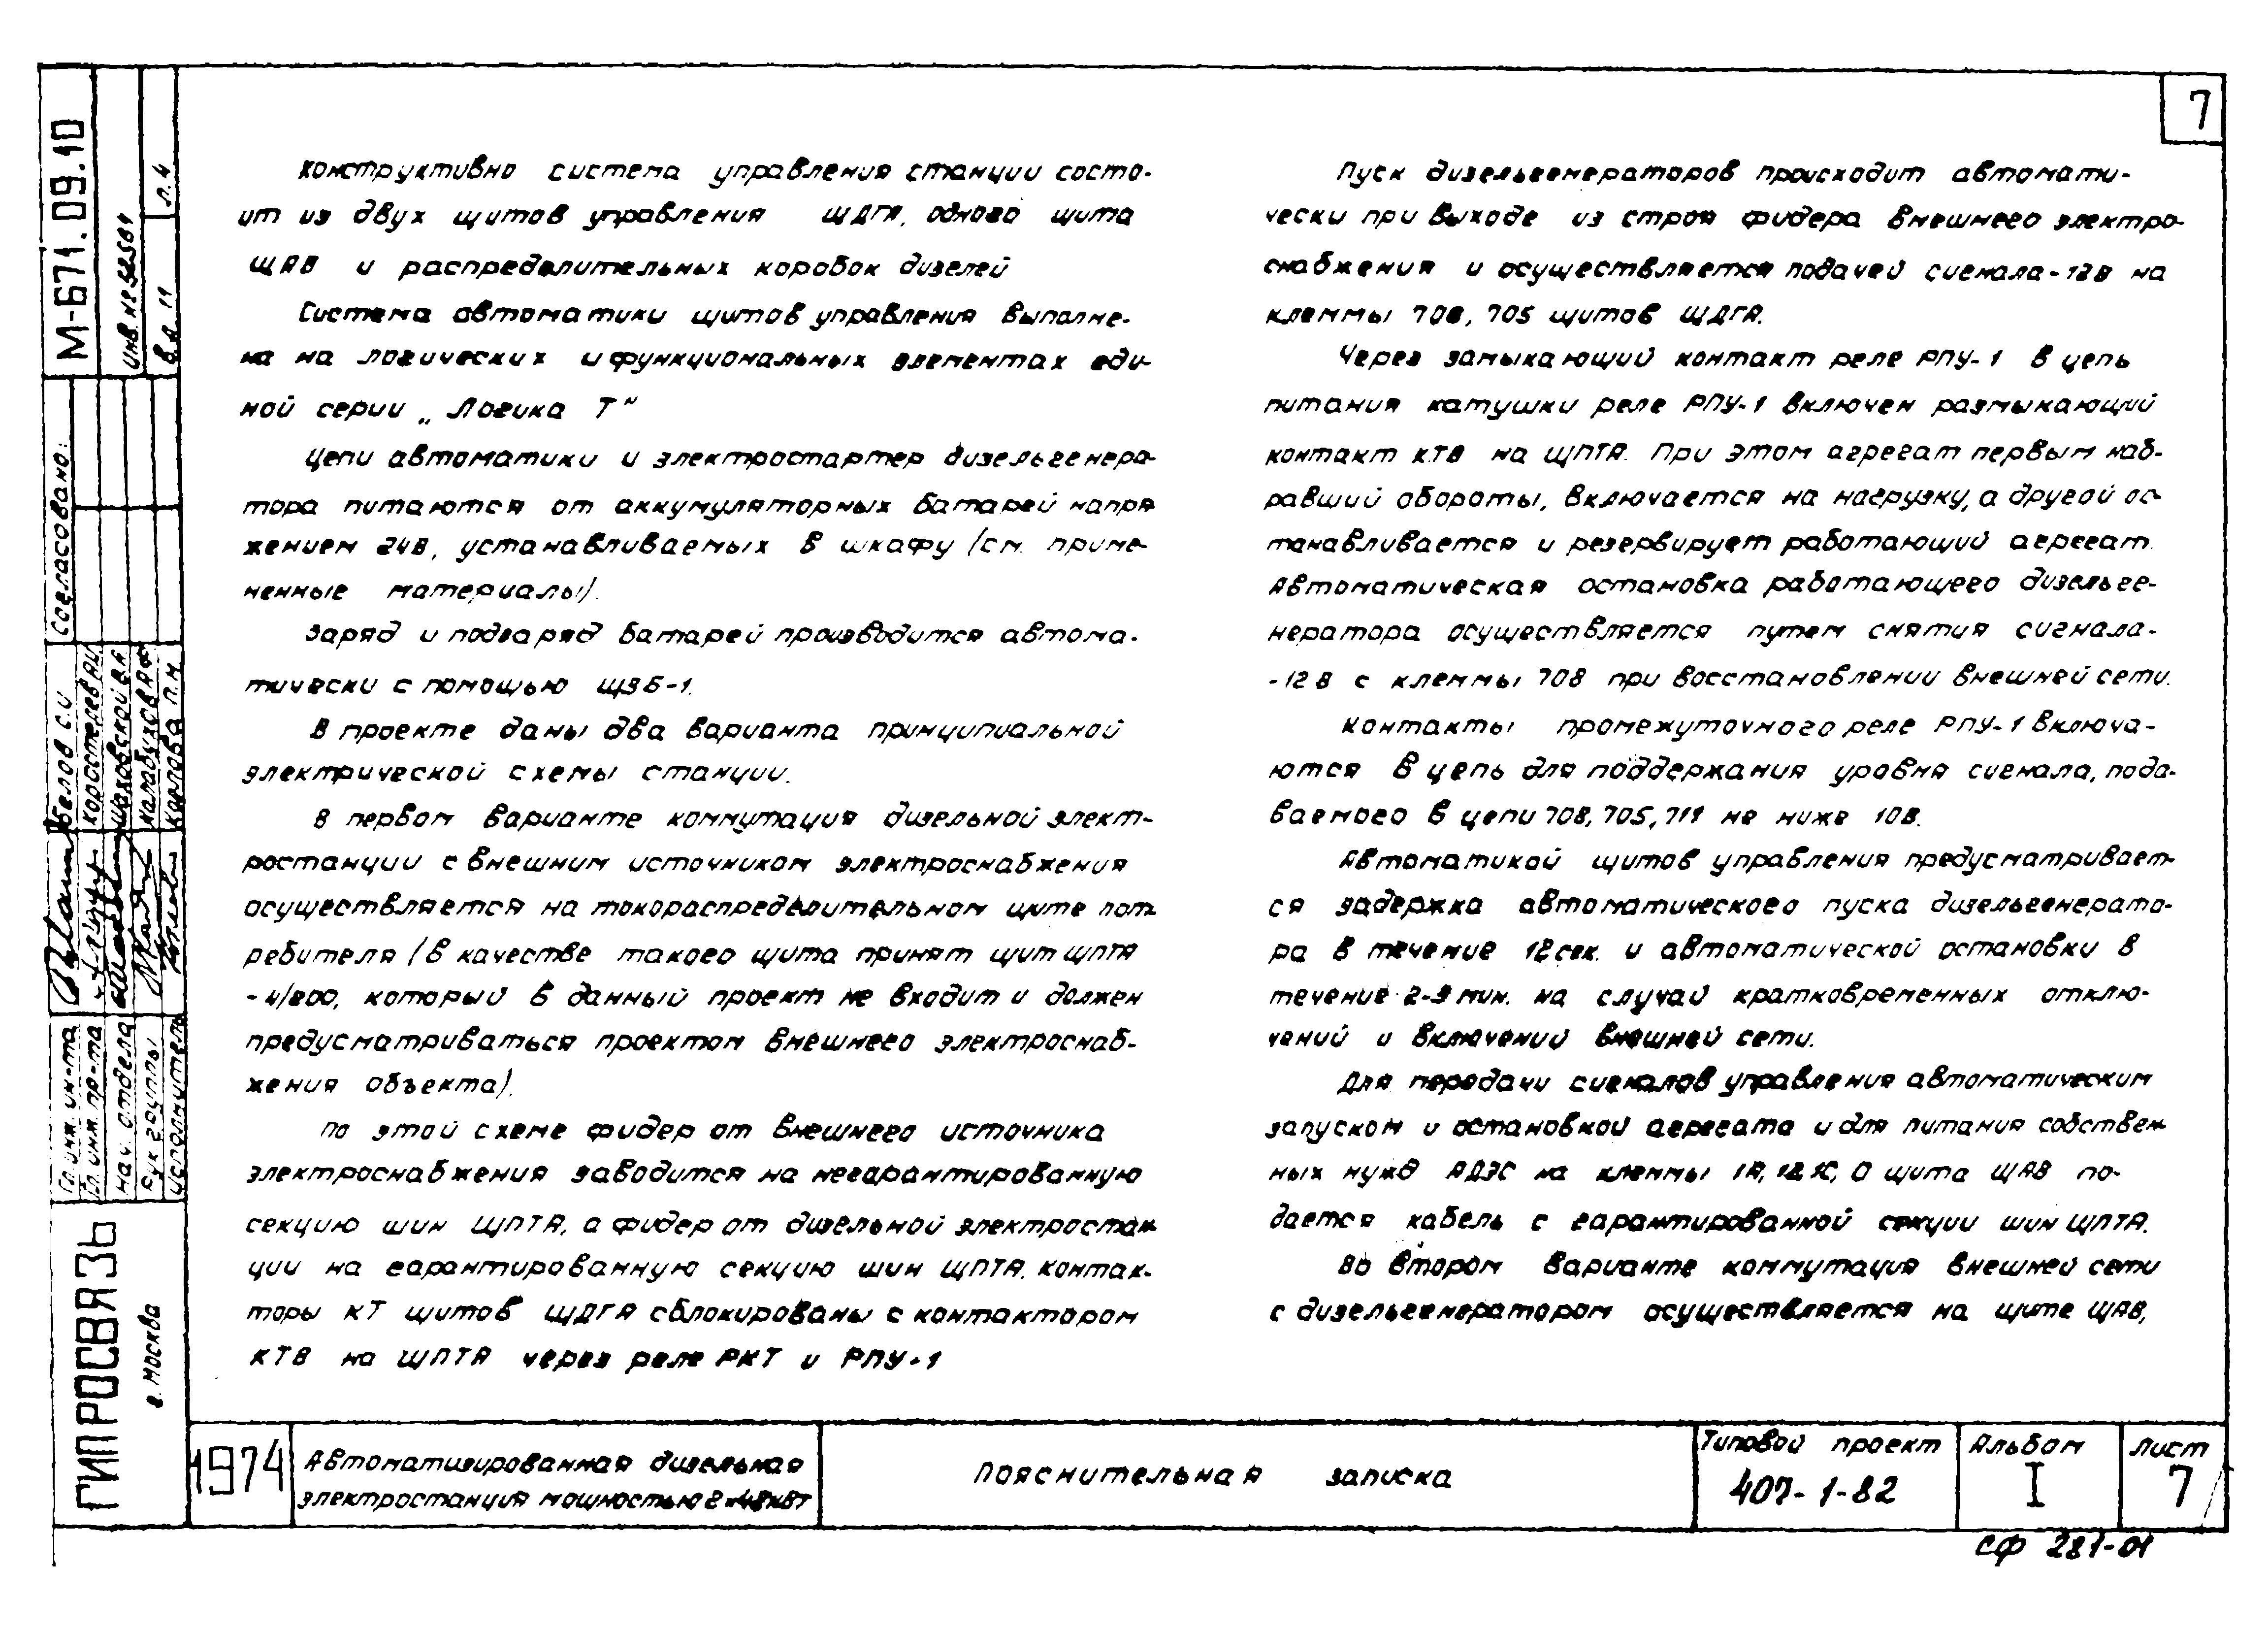 7
Конструктивно система управления станции состо-
ит из двух щитов управления ЩДГА, одного щита
ЩАВ и распределительных коробок дизелей
Система автоматики щитов управления выполне-
на на логических и функциональных элементах еди-
ной серии „Логика Т"
Цепи автоматики и электростартер дизельгенера-
тора питаются от аккумуляторных батарей напря
жением 24В, устанавливаемых в шкафу (см. приме-
ненные материалы).
Заряд и подзаряд батарей производится автома-
тически с помощью ЩЗБ-1.
В проекте даны два варианта принципиальной
электрической схемы станции.
В первом варианте коммутация дизельной элект-
ростанции с внешним источником электроснабжения
осуществляется на токораспределительном щите пот-
ребителя (в качестве такого щита принят щит ЩПТА
-4/200, который в данный проект не входит и должен
предусматриваться проектом внешнего электроснаб-
жения объекта).
По этой схеме фидер от внешнего источника
электроснабжения заводится на негарантированную
секцию шин ЩПТА, а фидер от дизельной электростан
ции на гарантированную секцию шин ЩПТА. Контак-
торы КТ щитов ЩДГА сблокированы с контактором
КТВ на ЩПТА через реле РКТ и РПУ-1
Пуск дизельгенераторов происходит автомати-
чески при выходе из строя фидера внешнего электро-
снабжения и осуществляется подачей сигнала -12В на
клеммы 708, 705 щитов ЩДГА.
Через замыкающий контакт реле РПУ-1 в цепь
питания катушки реле РПУ-1 включен размыкающий
контакт КТВ на ЩПТА. При этом агрегат первым наб-
равший обороты, включается на нагрузку, а другой ос-
танавливается и резервирует работающий агрегат.
Автоматическая остановка работающего дизельге-
нератора осуществляется путем снятия сигнала-
-12В с клеммы 708 при восстановлении внешней сети.
Контакты промежуточного реле РПУ-1 включа-
ются в цепь для поддержания уровня сигнала, пода-
ваемого в цепи 708, 705, 711 не ниже 10В.
Автоматикой щитов управления предусматривает-
ся задержка автоматического пуска дизельгенерато-
ра в течение 12 сек. и автоматической остановки в
течение 2-3 мин. на случай кратковременных отклю-
чений и включений внешней сети.
Для передачи сигналов управления автоматическим
запуском и остановкой агрегата и для питания собствен
ных нужд АДЭС на клеммы 1А, 1В, 1С, 0 щита ЩАВ по-
дается кабель с гарантированной секции шин ЩПТА.
Во втором варианте коммутация внешней сети
с дизельгенератором осуществляется на щите ЩАВ,
М-671.09.10
Инв. №52581
В.д. 11 л.4
Согласовано:
Гл. инж. ин-та Белов С.И
Гл. инж. пр-та Коростелев
Нач. отдела Шаховской В.А
Рук группы Калабухов А.Ф
Исполнитель Карпова Л.М
ГИПРОСВЯЗЬ
г. Москва
1974
Автоматизированная дизельная
электростанция мощностью 2×48кВт
Пояснительная записка
Типовой проект
407-1-82
Альбом
I
Лист
7
СФ 281-01